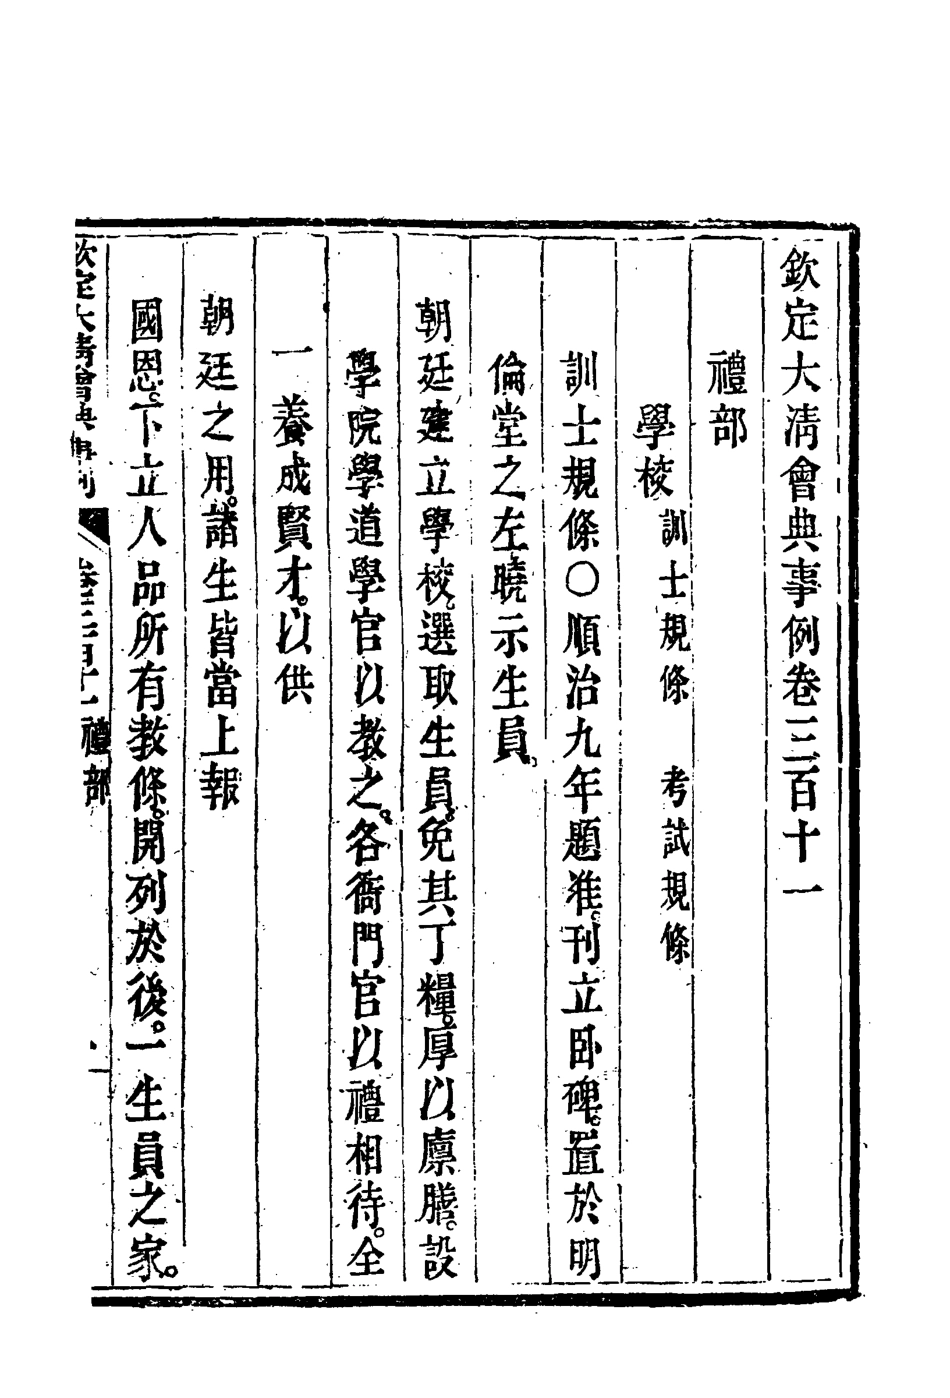 欽定大清會典事例卷三百十一
禮部
學校訓士規條　考試規條
訓士規條○順治九年題准。刊立臥碑。置於明
倫堂之左。曉示生員。
朝廷建立學校。選取生員。免其丁糧。厚以廩膳。設
學院學道學官以教之。各衙門官以禮相待。全
一養成賢才。以供
朝廷之用。諸生皆當上報
國恩。下立人品。所有教條。開列於後。一生員之家。
欽定大清會典事例　卷三百十一　禮部　一